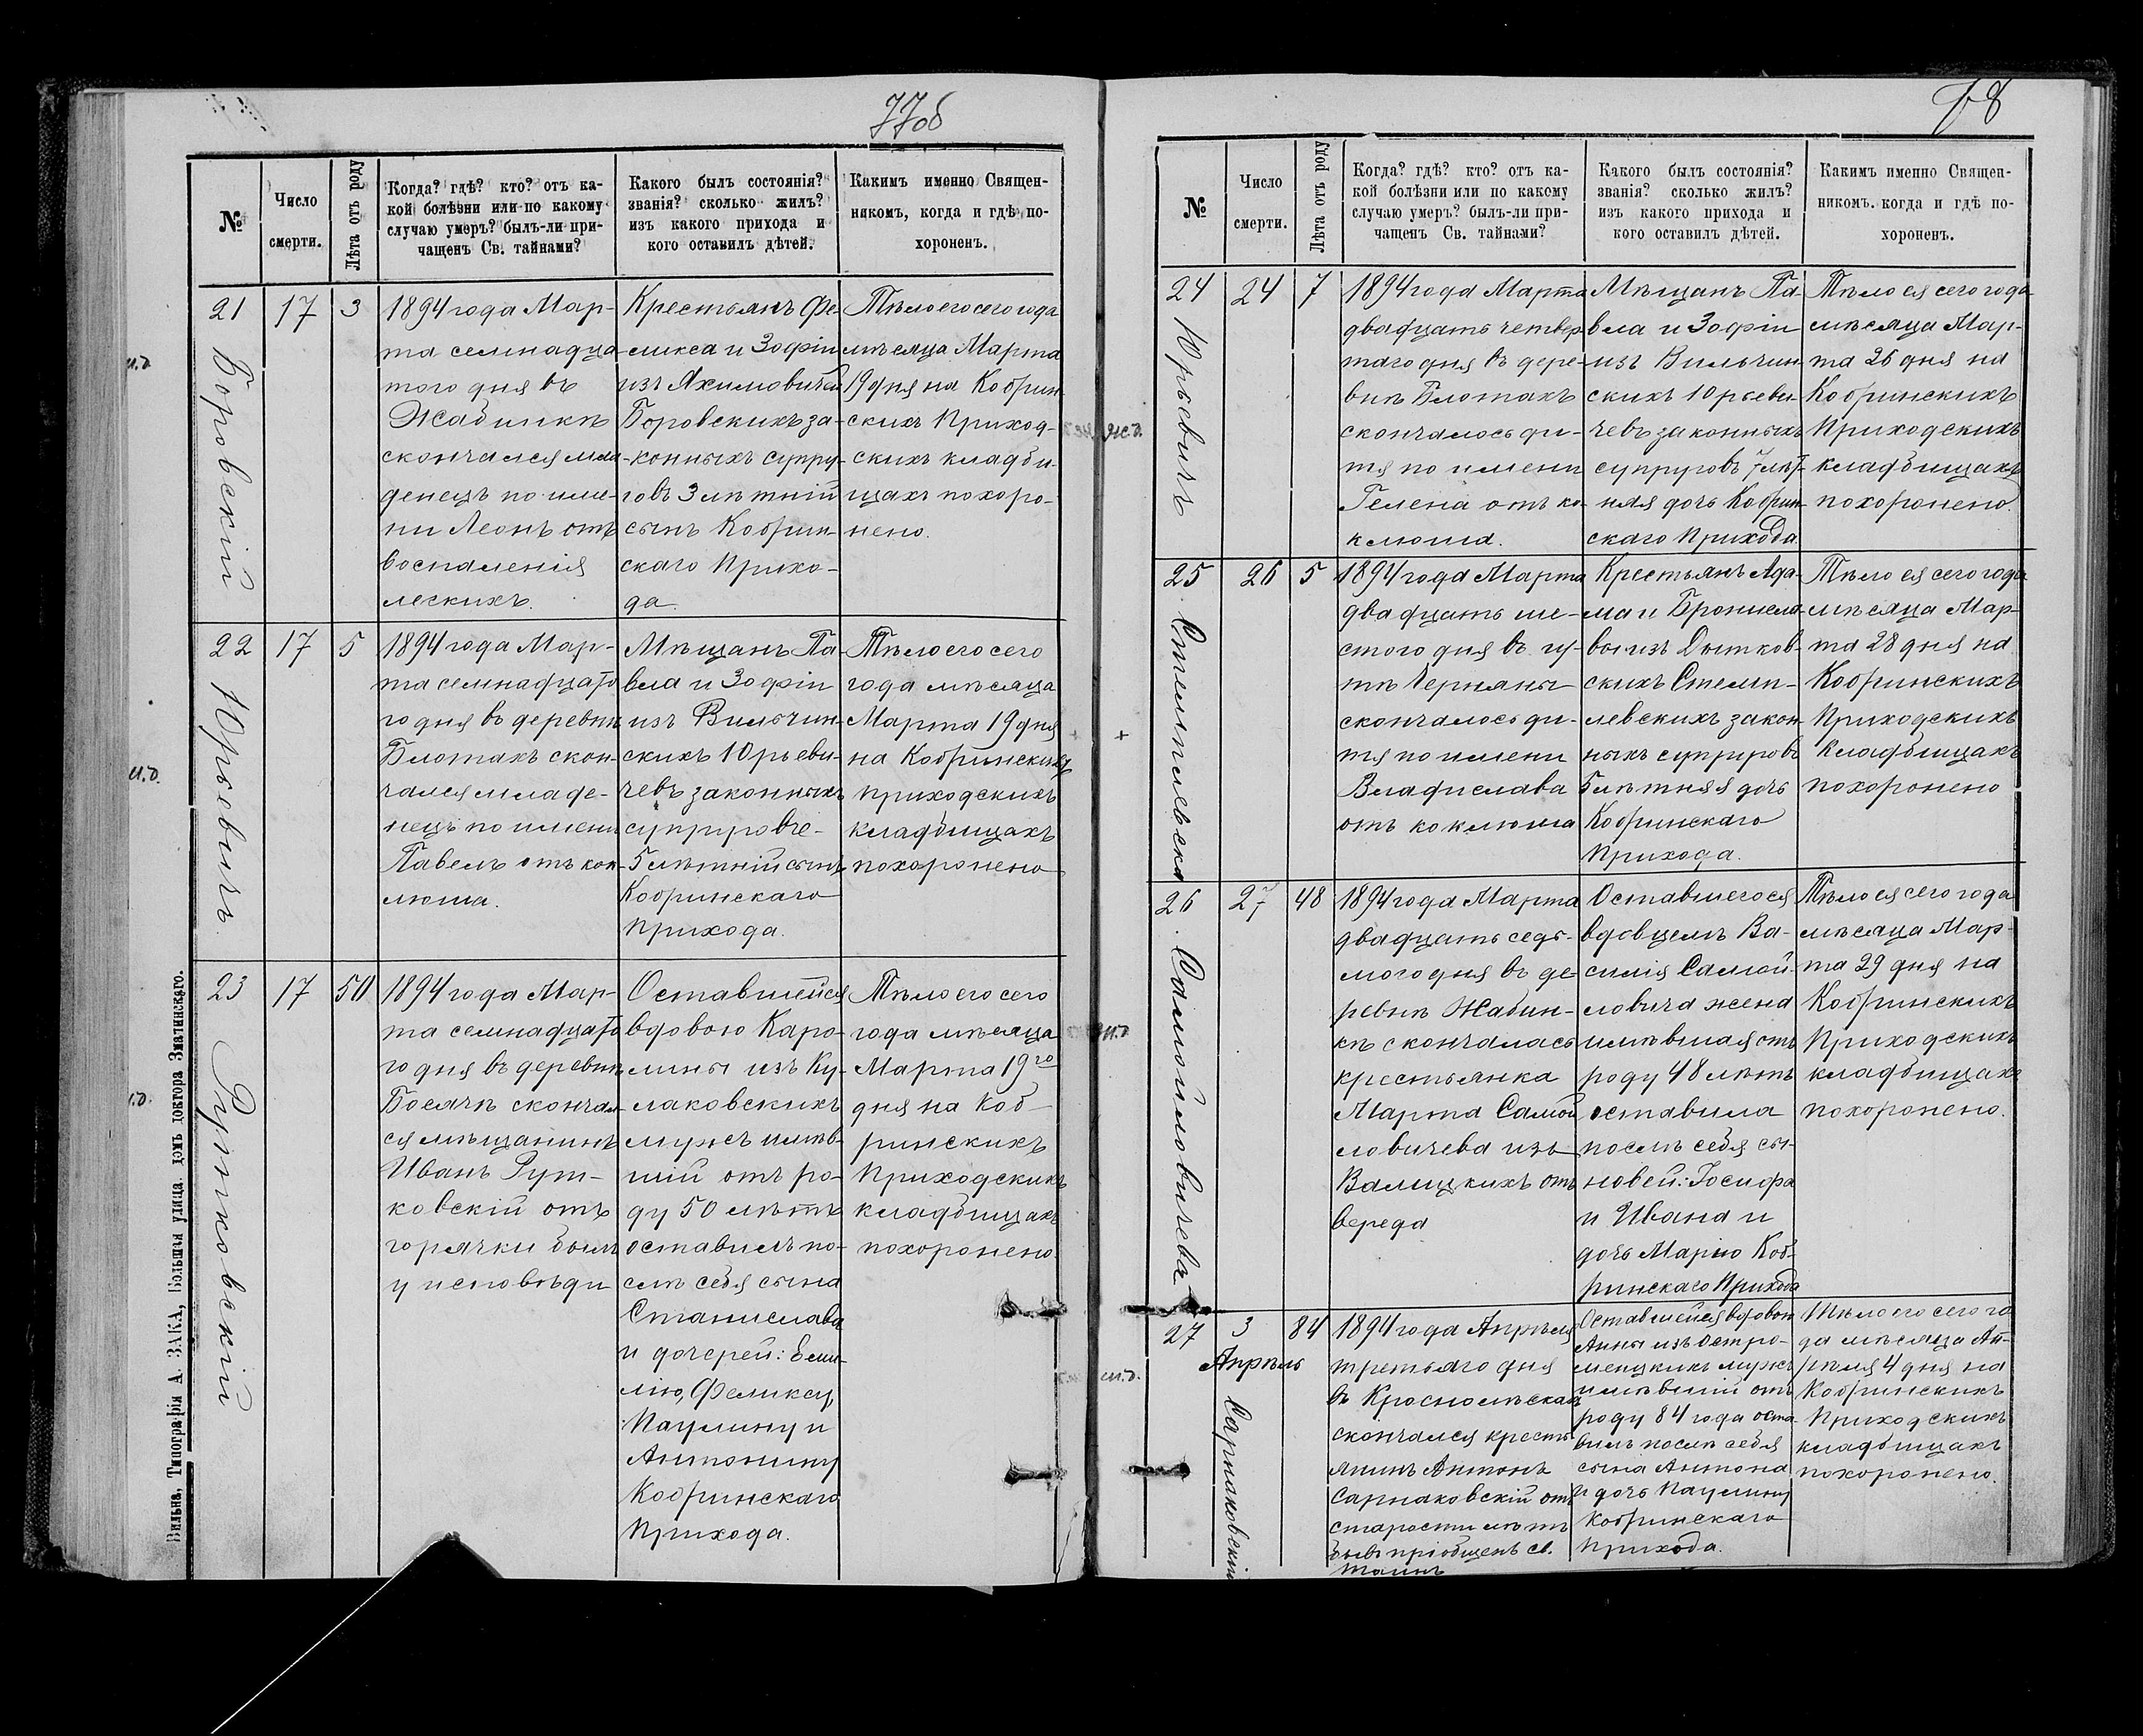 77об
№
Число
смерти.
Лѣта отъ роду
Когда? гдѣ? кто? отъ ка-
кой болѣзни или по какому
случаю умеръ? былъ-ли при-
чащенъ Св. тайнами?
Какого былъ состоянія?
званія? сколько жилъ?
изъ какого прихода и
кого оставилъ дѣтей.
Какимъ именно Священ-
никомъ, когда и гдѣ по-
хороненъ.
21
17
3
Боровскій
1894 года Мар-
та семнадца-
того дня въ
Жабинкѣ
скончался мла-
денецъ по име-
ни Леонъ отъ
воспаленія
легкихъ.
Крестьянъ Фе-
ликса и Зофіи
изъ Яхимовичей
Боровскихъ за-
конныхъ супру-
говъ 3 лѣтній
сынъ Кобрин-
скаго Прихо-
да.
Тѣло его сего года
мѣсяца Марта
19 дня на Кобрин-
скихъ Приход-
скихъ кладби-
щахъ похоро-
нено.
22
17
5
Юрьевичъ
1894 года Мар-
та семнадцато
го дня въ деревнѣ
Блотахъ скон-
чался младе-
нецъ по имени
Павелъ отъ кок-
люша.
Мѣщанъ Па-
вла и Зофіи
изъ Вильчин-
скихъ Юрьеви-
чевъ законныхъ
супруговъ
5 лѣтній сынъ
Кобринскаго
Прихода.
Тѣло его сего
года мѣсяца
Марта 19 дня
на Кобринскихъ
приходскихъ
кладбищахъ
похоронено
23
17
50
Рутковскій
1894 года Мар-
та семнадцато
го дня въ деревнѣ
Босячѣ скончал-
ся мѣщанинъ
Иванъ Рут-
ковскій отъ
горячки былъ
у исповѣди
Оставшейся
вдовою Каро-
лины изъ Ку-
лаковскихъ
мужъ имѣв-
шій отъ ро-
ду 50 лѣтъ
оставилъ по-
слѣ себя сына
Станислава
и дочерей: Еми-
лію, Феликсу,
Паулину и
Антонину
Кобринскаго
Прихода.
Тѣло его сего
года мѣсяца
Марта 19го
дня на Коб-
ринскихъ
Приходскихъ
кладбищахъ
похоронено.
Вильна, Типографія А. ЗАКА, Большая улица домъ доктора Знатинскаго.
78
№
Число
смерти.
Лѣта отъ роду
Когда? гдѣ? кто? отъ ка-
кой болѣзни или по какому
случаю умеръ? былъ-ли при-
чащенъ Св. тайнами?
Какого былъ состоянія?
званія? сколько жилъ?
изъ какого прихода и
кого оставилъ дѣтей.
Какимъ именно Священ-
никомъ. когда и гдѣ по-
хороненъ.
24
24
7
Юрьевичъ
1894 года Марта
двадцать четвер
таго дня въ дере-
внѣ Блотахъ
скончалось ди-
тя по имени
Гелена отъ ко-
клюша.
Мѣщанъ Па-
вла и Зофіи
изъ Вильчин-
скихъ Юрьеви-
чевъ законныхъ
супруговъ 7 лѣт-
няя дочь Кобрин-
скаго Прихода.
Тѣло ея сего года
мѣсяца Мар-
та 26 дня на
Кобринскихъ
Приходскихъ
кладбищахъ
похоронено.
25
26
5
Стемплевска
1894 года Марта
двадцать ше-
стого дня въ гу-
тѣ Черняны
скончалось ди-
тя по имени
Владислава
отъ коклюша
Крестьянъ Ада-
ма и Брониcла-
вы изъ Дытков-
скихъ Стемп-
левскихъ закон-
ныхъ супруговъ
5 лѣтняя дочь
Кобринскаго
Прихода.
Тѣло ея сего года
мѣсяца Мар-
та 28 дня на
Кобринскихъ
Приходскихъ
кладбищахъ
похоронено
26
27
48
Самойловичева
1894 года Марта
двадцать седь-
мого дня въ де-
ревнѣ Жабин-
кѣ скончалась
крестьянка
Марта Самой
ловичева изъ
Валицкихъ отъ
вереда
Оставшегося
вдовцемъ Ва-
силія Самой-
ловича жена
имѣвшая отъ
роду 48 лѣтъ
оставила
послѣ себя сы-
новей: Іосифа
и Ивана и
дочь Марію Коб-
ринскаго Прихода
Тѣло ея сего года
мѣсяца Мар-
та 29 дня на
Кобринскихъ
Приходскихъ
кладбищахъ
похоронено.
27
3
Апрѣль
84
Сарнаковскій
1894 года Апрѣля
третьяго дня
въ
скончался кресть
янинъ Антонъ
Сарнаковскій отъ
старости лѣтъ
бывъ пріобщенъ св.
тайнъ
Оставшейся вдовою
Анны изъ Остро-
менцкихъ мужъ
имѣвшій отъ
роду 84 года оста-
вилъ послѣ себя
сына Антона
и дочь Паулину
Кобринскаго
Прихода.
Тѣло его сего го
да мѣсяца Ап-
рѣля 4 дня на
Кобринскихъ
Приходскихъ
кладбищахъ
похоронено.